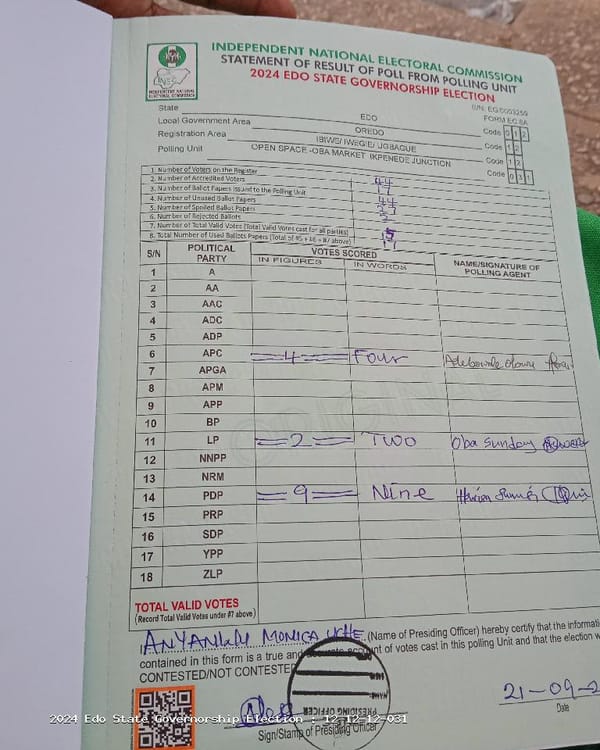 INDEPENDENT NATIONAL ELECTORAL COMMISSION
STATEMENT OF RESULT OF POLL FROM POLLING UNIT
2024 EDO STATE GOVERNORSHIP ELECTION
INEC
INDEPENDENT NATIONAL
ELECTORAL COMMISSION
FORM EC 8A
State EDO Code 0 1 2
Local Government Area OREDO Code 1 2
Registration Area IBIWE/ IWEGIE/ UGBAGUE Code 1 2
Polling Unit OPEN SPACE -OBA MARKET IKPENEDE JUNCTION Code 0 3 1
1. Number of Voters on the Register 44
2. Number of Accredited Voters 17
3. Number of Ballot Papers Issued to the Polling Unit 44
4. Number of Unused Ballot Papers
5. Number of Spoiled Ballot Papers
6. Number of Rejected Ballots
7. Number of Total Valid Votes (Total Valid Votes cast for all parties)
8. Total Number of Used Ballots Papers (Total of #5 + #6 + #7 above)
S/N POLITICAL PARTY VOTES SCORED NAME/SIGNATURE OF POLLING AGENT
IN FIGURES IN WORDS
1 A
2 AA
3 AAC
4 ADC
5 ADP
6 APC 4 Four
7 APGA
8 APM
9 APP
10 BP
11 LP 2 Two Oba Sunday
12 NNPP
13 NRM
14 PDP 9 Nine
15 PRP
16 SDP
17 YPP
18 ZLP
TOTAL VALID VOTES
(Record Total Valid Votes under #7 above)
MONICA UCHE (Name of Presiding Officer) hereby certify that the informati
contained in this form is a true and account of votes cast in this polling Unit and that the election w
CONTESTED/NOT CONTESTED
PRESIDING OFFICER
21-09-2
Sign/Stamp of Presiding Officer Date
2024 Edo State Governorship Election : 12-12-12-031